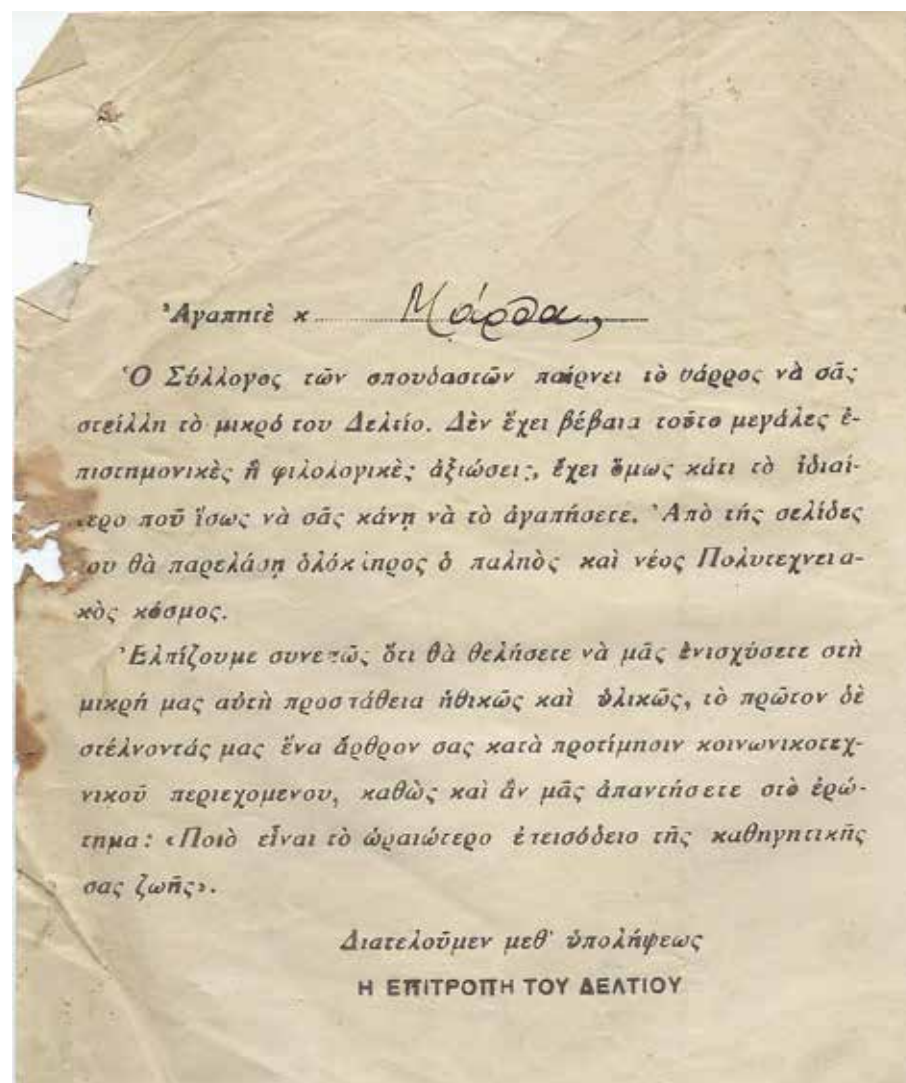 Ἀγαπητὲ κ. Μάρθα,
Ὁ Σύλλογος τῶν σπουδαστῶν παίρνει τὸ θάρρος νὰ σᾶς
στείλλη τὸ μικρό του Δελτίο. Δὲν ἔχει βέβαια τοῦτο μεγάλες ἐ-
πιστημονικὲς ἢ φιλολογικὲς ἀξιώσεις, ἔχει ὅμως κάτι τὸ ἰδιαί-
τερο ποῦ ἴσως νὰ σᾶς κάνῃ νὰ τὸ ἀγαπήσετε. Ἀπὸ τῆς σελίδες
του θὰ παρελάσῃ ὁλόκληρος ὁ παληὸς καὶ νέος Πολυτεχνεια-
κὸς κόσμος.
Ἐλπίζουμε συνεπῶς ὅτι θὰ θελήσετε νὰ μᾶς ἐνισχύσετε στὴ
μικρή μας αὐτὴ προσπάθεια ἠθικῶς καὶ ὑλικῶς, τὸ πρῶτον δὲ
στέλνοντάς μας ἕνα ἄρθρον σας κατὰ προτίμησιν κοινωνικοτεχ-
νικοῦ περιεχομενου, καθὼς καὶ ἂν μᾶς ἀπαντήσετε στὸ ἐρώ-
τημα: «Ποιὸ εἶναι τὸ ὡραιώτερο ἐπεισόδειο τῆς καθηγητικῆς
σας ζωῆς».
Διατελοῦμεν μεθ' ὑπολήψεως
Η ΕΠΙΤΡΟΠΗ ΤΟΥ ΔΕΛΤΙΟΥ